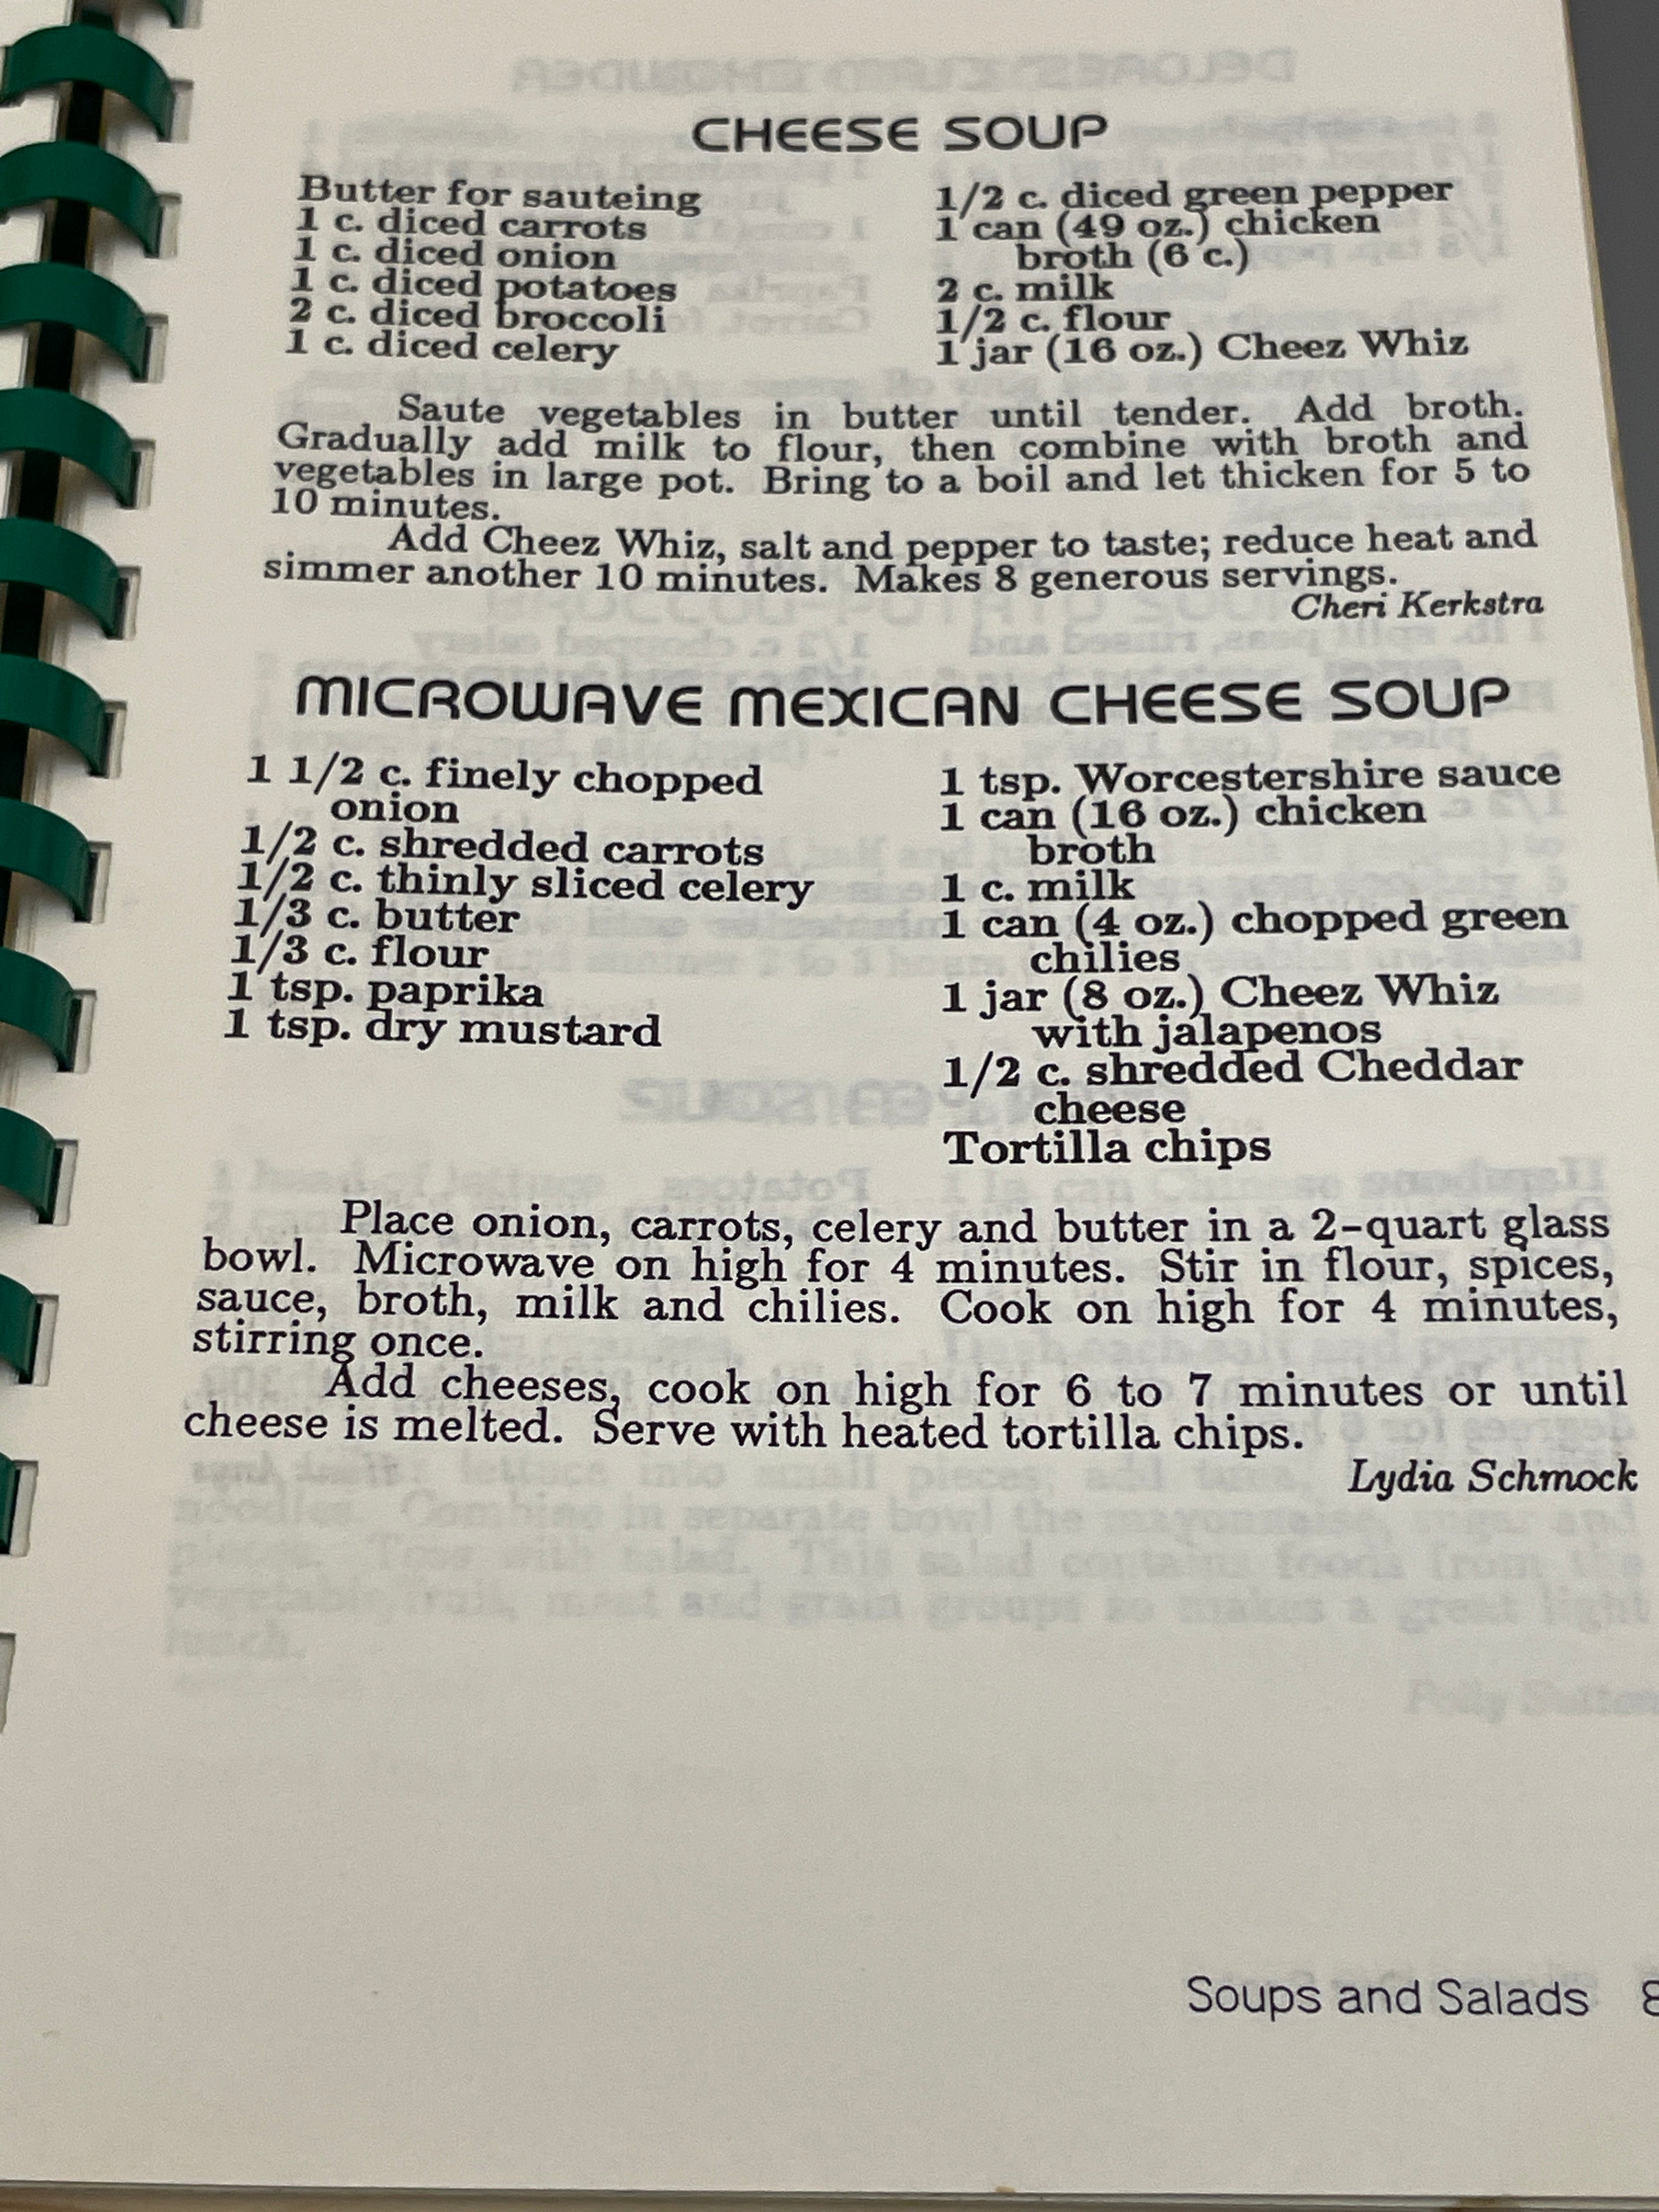 CHEESE SOUP
Butter for sauteing
1 c. diced carrots
1 c. diced onion
1 c. diced potatoes
2 c. diced broccoli
1 c. diced celery
1/2 c. diced green pepper
1 can (49 oz.) chicken
broth (6 c.)
2 c. milk
1/2 c. flour
1 jar (16 oz.) Cheez Whiz
Saute vegetables in butter until tender. Add broth.
Gradually add milk to flour, then combine with broth and
vegetables in large pot. Bring to a boil and let thicken for 5 to
10 minutes.
Add Cheez Whiz, salt and pepper to taste; reduce heat and
simmer another 10 minutes. Makes 8 generous servings.
Cheri Kerkstra
MICROWAVE MEXICAN CHEESE SOUP
1 1/2 c. finely chopped
onion
1/2 c. shredded carrots
1/2 c. thinly sliced celery
1/3 c. butter
1/3 c. flour
1 tsp. paprika
1 tsp. dry mustard
1 tsp. Worcestershire sauce
1 can (16 oz.) chicken
broth
1 c. milk
1 can (4 oz.) chopped green
chilies
1 jar (8 oz.) Cheez Whiz
with jalapenos
1/2 c. shredded Cheddar
cheese
Tortilla chips
Place onion, carrots, celery and butter in a 2-quart glass
bowl. Microwave on high for 4 minutes. Stir in flour, spices,
sauce, broth, milk and chilies. Cook on high for 4 minutes,
stirring once.
Add cheeses, cook on high for 6 to 7 minutes or until
cheese is melted. Serve with heated tortilla chips.
Lydia Schmock
Soups and Salads